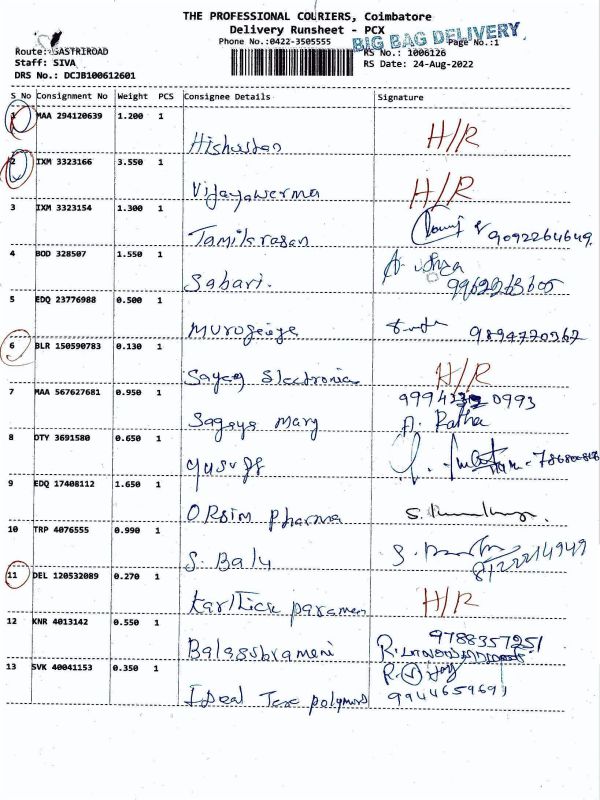 THE PROFESSIONAL COURIERS, Coimbatore
Delivery Runsheet - PCX
Phone No.:0422-3505555
BIG BAG DELIVERY
Page No.:1
Route: SASTRIROAD
RS No.: 1006126
Staff: SIVA
RS Date: 24-Aug-2022
DRS No.: DCJB100612601
S No Consignment No Weight PCS Consignee Details Signature
1 MAA 294120639 1.200 1
H/R
2 IXM 3323166 3.550 1
Vijayawerma H/R
3 IXM 3323154 1.300 1
Tamilarasan 9092264649
4 BOD 328507 1.550 1
Sabari.
5 EDQ 23776988 0.500 1
6 BLR 150590783 0.130 1
H/R
7 MAA 567627681 0.950 1
Sagaya Mary A. Ratha
8 OTY 3691580 0.650 1
9 EDQ 17408112 1.650 1
Pharma
10 TRP 4076555 0.990 1
S. Balu
11 DEL 120532089 0.270 1
H/R
12 KNR 4013142 0.550 1
9788357251
Balassbrameni
13 SVK 40041153 0.350 1
Ideal Tex polymers 9944659691